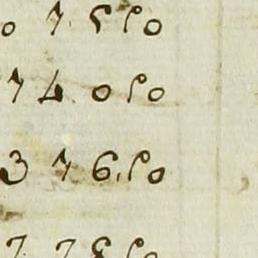 0 7 5 50
7 4. 0 50
3 7 6.50
7 7 8 50